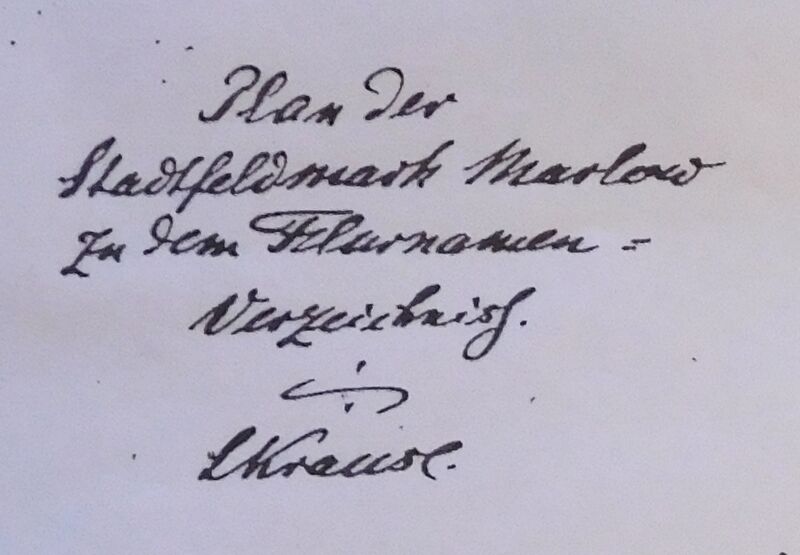 Plan der
Stadtfeldmark Marlow
zu dem Flurnamen =
Verzeichniß.
LKrause.